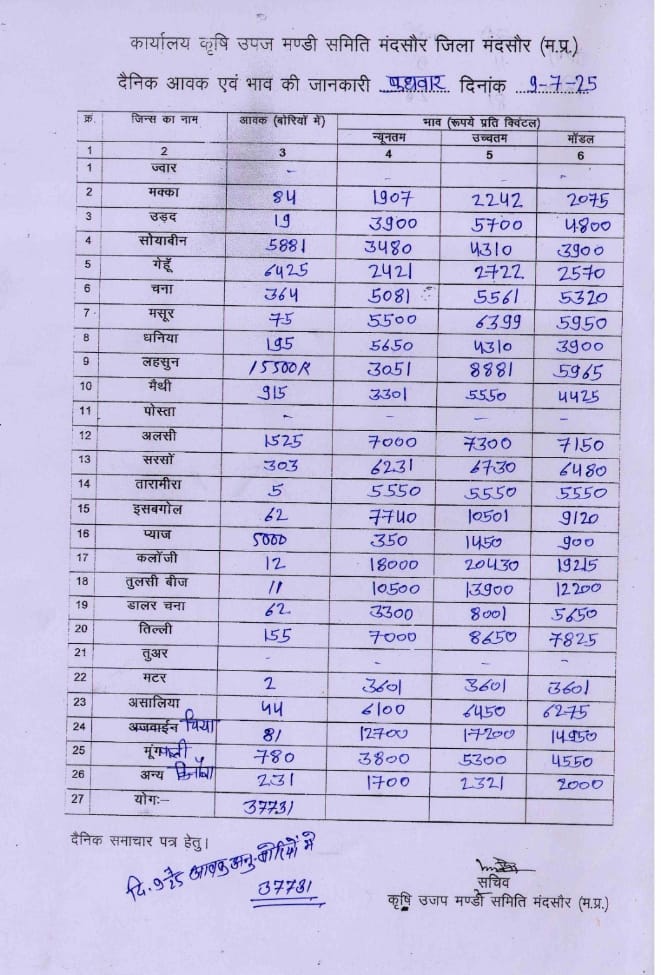 कार्यालय कृषि उपज मण्डी समिति मंदसौर जिला मंदसौर (म.प्र.)
दैनिक आवक एवं भाव की जानकारी बुधवार दिनांक 9-7-25
क्र. जिन्स का नाम आवक (बोरियों में) भाव (रूपये प्रति क्विंटल)
न्यूनतम उच्चतम मॉडल
1 2 3 4 5 6
1 ज्वार - - - -
2 मक्का 84 1907 2242 2075
3 उड़द 19 3900 5700 4800
4 सोयाबीन 5881 3480 4310 3900
5 गेहूँ 6425 2421 2722 2570
6 चना 364 5081 5561 5320
7 मसूर 75 5500 6399 5950
8 धनिया 195 5650 4310 3900
9 लहसुन 15500K 3051 8881 5965
10 मैथी 915 3301 5550 4425
11 पोस्ता - - - -
12 अलसी 1525 7000 7300 7150
13 सरसों 303 6231 6730 6480
14 तारामीरा 5 5550 5550 5550
15 इसबगोल 62 7740 10501 9120
16 प्याज 5000 350 1450 900
17 कलॉजी 12 18000 20430 19215
18 तुलसी बीज 11 10500 13900 12200
19 डालर चना 62 3300 8001 5650
20 तिल्ली 155 7000 8650 7825
21 तुअर - - - -
22 मटर 2 3601 3601 3601
23 असालिया 44 6100 6450 6275
24 अजवाईन चिया 81 12700 17200 14950
25 मूंगफली 780 3800 5300 4550
26 अन्य 231 1700 2321 2000
27 योगः- 37731
दैनिक समाचार पत्र हेतु।
दि. 9 आवक अनु. बोरियों में
37731
सचिव
कृषि उजप मण्डी समिति मंदसौर (म.प्र.)